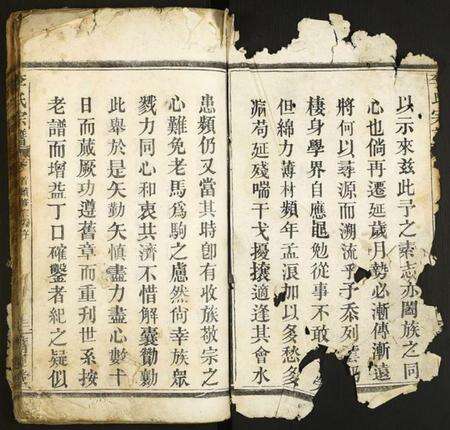 李氏宗
以示來茲此予之素志亦闔族之同
心也倘再遷延歲月勢必漸傳漸遠
將何以尋源而溯流乎予忝列
棲身學界自應黽勉從事不敢
但綿力薄材頻年孟浪加以多愁多
病苟延殘喘干戈擾攘適逢其會水
患頻仍又當其時卽有收族敬宗之
心難免老馬爲駒之慮然尙幸族眾
戮力同心和衷共濟不惜解囊勷勷
此舉於是矢勤矢慎盡力盡心數十
日而蕆厥功遵舊章而重刊世系按
老譜而增益丁口確鑿者紀之疑似
李氏宗譜